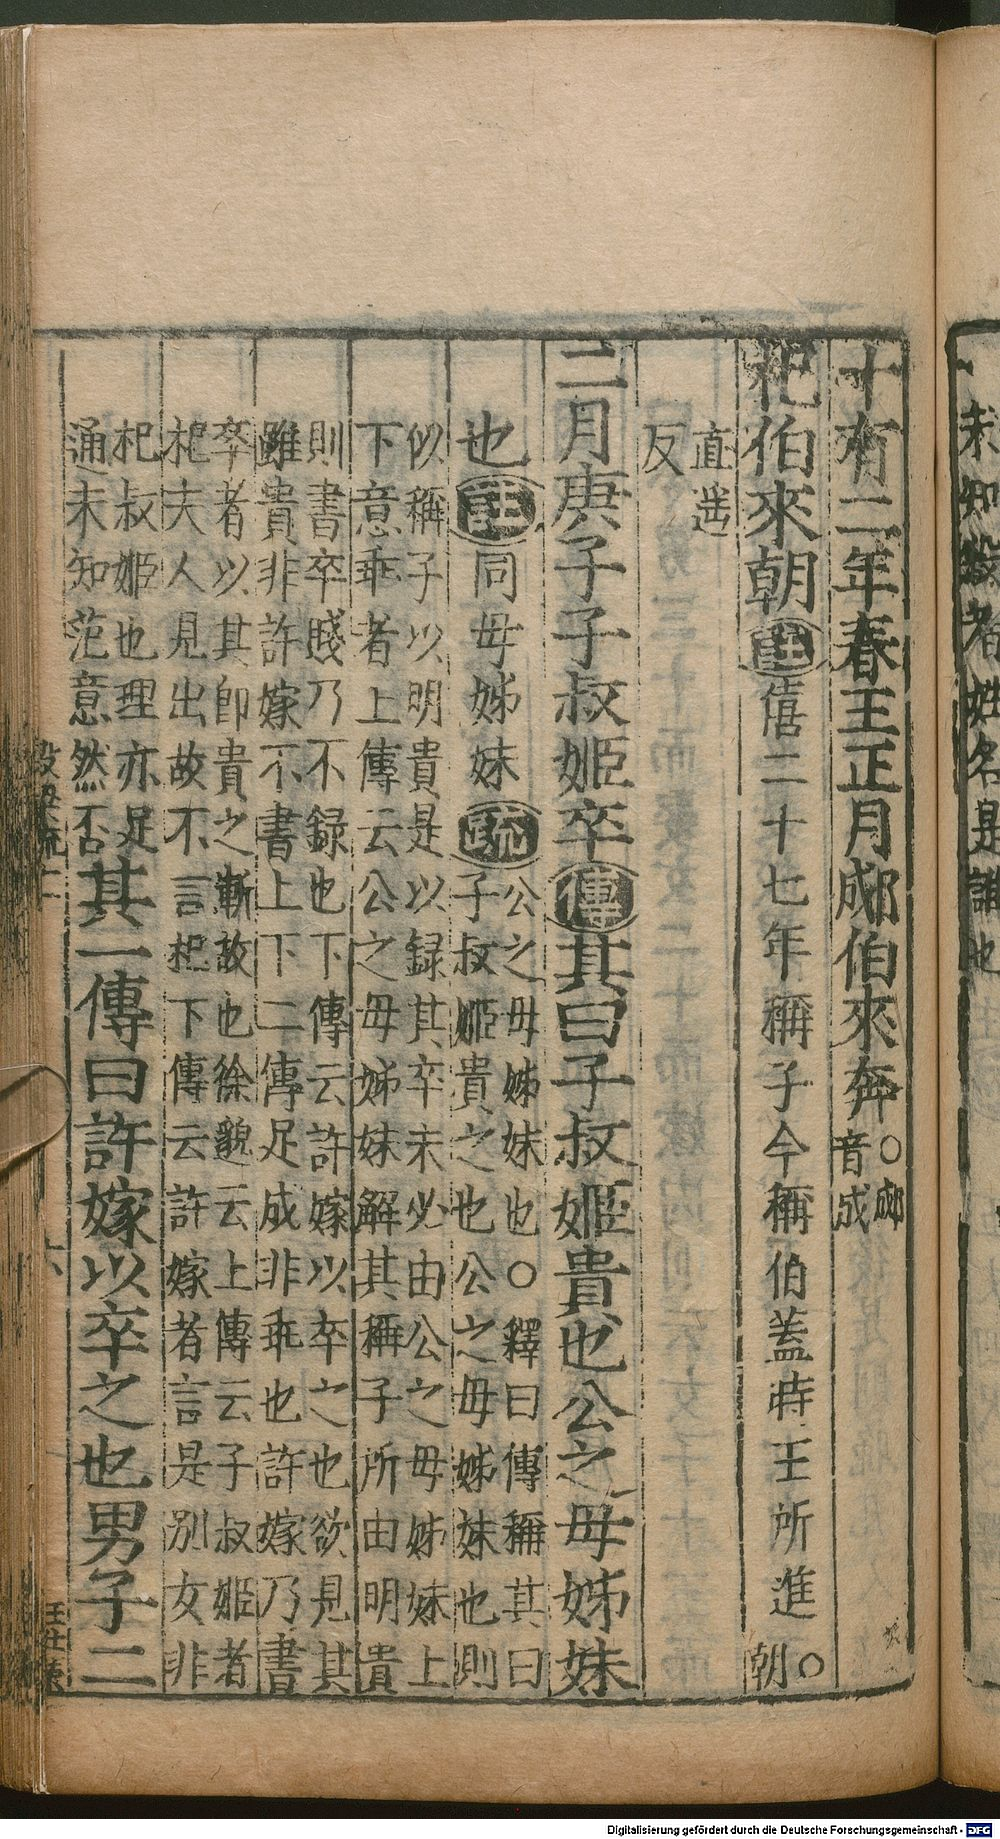 未知殺者姓名是誰也
十有二年春王正月郕伯來奔○郕
音成
杞伯來朝註僖二十七年稱子今稱伯蓋時王所進○
朝
直遥
反
二月庚子子叔姬卒傳其曰子叔姬貴也公之母姊妹
也註同母姊妹疏公之母姊妹也○釋曰傳稱其曰
子叔姬貴之也公之母姊妹也則
似稱子以明貴是以録其卒未必由公之母姊妹上
下意乖者上傳云公之母姊妹解其稱子所由明貴
則書卒賤乃不録也下傳云許嫁以卒之也欲見其
雖貴非許嫁不書上下二傳足成非乖也許嫁乃書
卒者以其即貴之漸故也徐邈云上傳云子叔姬者
杞夫人見出故不言杞下傳云許嫁者言是別女非
杞叔姬也理亦足
通未知范意然否其一傳曰許嫁以卒之也男子二
Digitalisierung gefördert durch die Deutsche Forschungsgemeinschaft - DFG